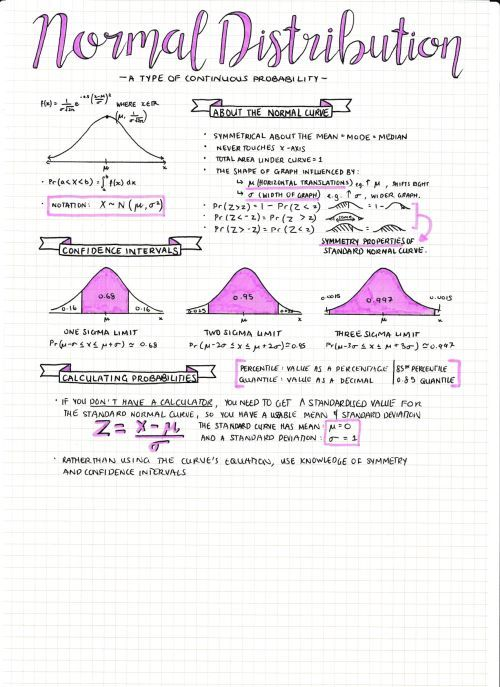 Normal Distribution
- A TYPE OF CONTINUOUS PROBABILITY -
f(x) = 1/σ√2π e^-0.5(x-μ/σ)² WHERE x∈R
(μ, 1/σ√2π)
μ x
Pr(a<x<b) = ∫ᵇₐ f(x) dx
NOTATION: X ~ N(μ, σ²)
ABOUT THE NORMAL CURVE
· SYMMETRICAL ABOUT THE MEAN = MODE = MEDIAN
· NEVER TOUCHES X-AXIS
· TOTAL AREA UNDER CURVE = 1
· THE SHAPE OF GRAPH INFLUENCED BY:
↳ μ (HORIZONTAL TRANSLATIONS) eg. ↑ μ, SHIFTS RIGHT
↳ σ (WIDTH OF GRAPH) eg. ↑ σ, WIDER GRAPH.
· Pr(Z>z) = 1 - Pr(Z<z) = 1 -
· Pr(Z<-z) = Pr(Z>z) =
· Pr(Z>-z) = Pr(Z<z) =
SYMMETRY PROPERTIES OF
STANDARD NORMAL CURVE.
CONFIDENCE INTERVALS
0.16 0.68 0.16
μ x
ONE SIGMA LIMIT
Pr(μ-σ≤x≤μ+σ) ≈ 0.68
0.025 0.95 0.025
μ x
TWO SIGMA LIMIT
Pr(μ-2σ≤x≤μ+2σ) ≈ 0.95
0.0015 0.997 0.0015
μ x
THREE SIGMA LIMIT
Pr(μ-3σ≤x≤μ+3σ) ≈ 0.997
CALCULATING PROBABILITIES
PERCENTILE: VALUE AS A PERCENTAGE | 85ᵗʰ PERCENTILE
QUANTILE: VALUE AS A DECIMAL | 0.85 QUANTILE
· IF YOU DON'T HAVE A CALCULATOR, YOU NEED TO GET A STANDARDISED VALUE FOR
THE STANDARD NORMAL CURVE, SO YOU HAVE A USABLE MEAN & STANDARD DEVIATION
Z = x-μ/σ
THE STANDARD CURVE HAS MEAN: μ=0
AND A STANDARD DEVIATION: σ=1
· RATHER THAN USING THE CURVE'S EQUATION, USE KNOWLEDGE OF SYMMETRY
AND CONFIDENCE INTERVALS